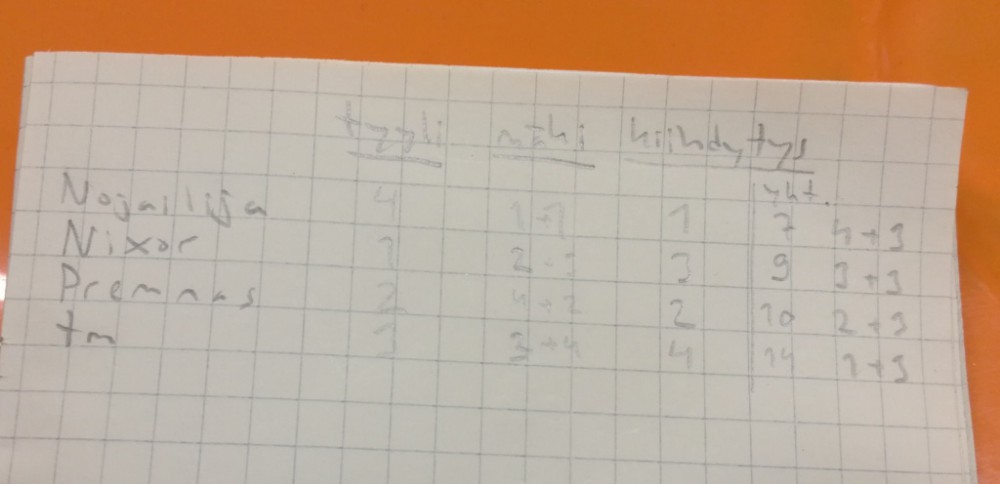 tyyli mäki kiihdytys
yht.
Nojailija 4 1+1 1 7 4+3
Nixor 2 3 9 3+3
Premnas 2 2 10 2+3
tm 3 3+4 4 14 1+3